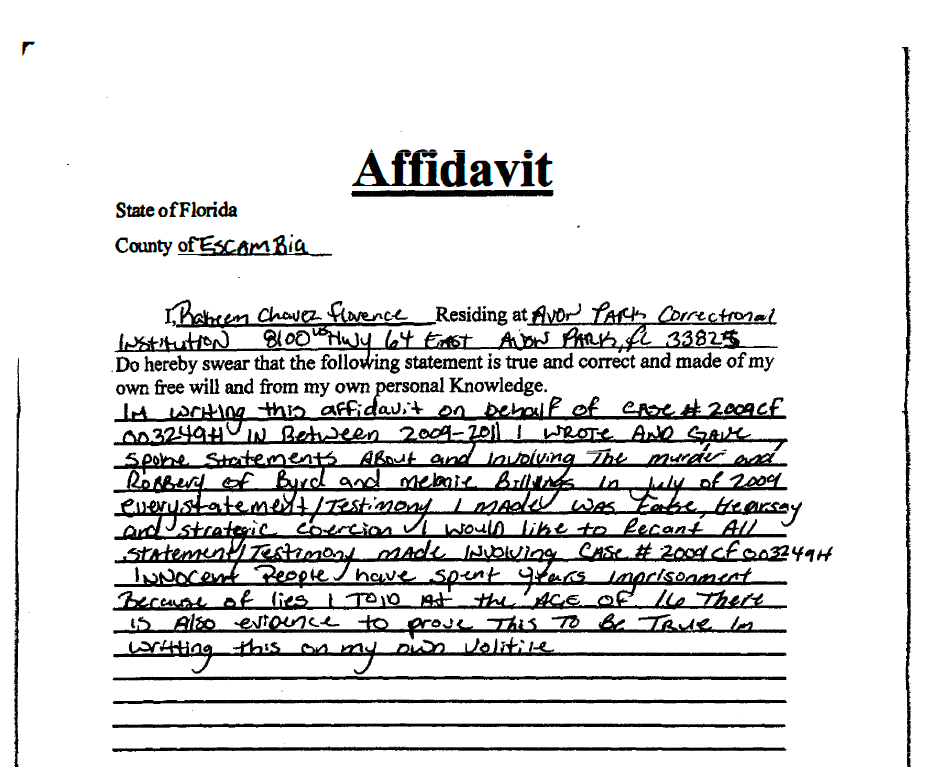 Affidavit
State of Florida
County of EscamBia
I, Raheem Chavez florence Residing at Avon Park Correctional
Institution 8100 US Hwy 64 East Avon Park, fl 33825
Do hereby swear that the following statement is true and correct and made of my
own free will and from my own personal Knowledge.
Im writing this affidavit on behalf of case # 2009cf
003249H IN Between 2009-2011 I wrote AND GAVE
spoke statements ABout and involving The murder and
Robbery of Byrd and melanie Billings In July of 2009
everystatement/Testimony I made was False, Hearsay
and strategic coercion I would like to Recant All
statement/Testimony made INvolving CASE # 2009cf003249H
INNocent People have spent years imprisonment
Because of lies I TOlD At the AGE OF 16 There
is Also evidence to prove This To Be True Im
writting this on my own Volitile